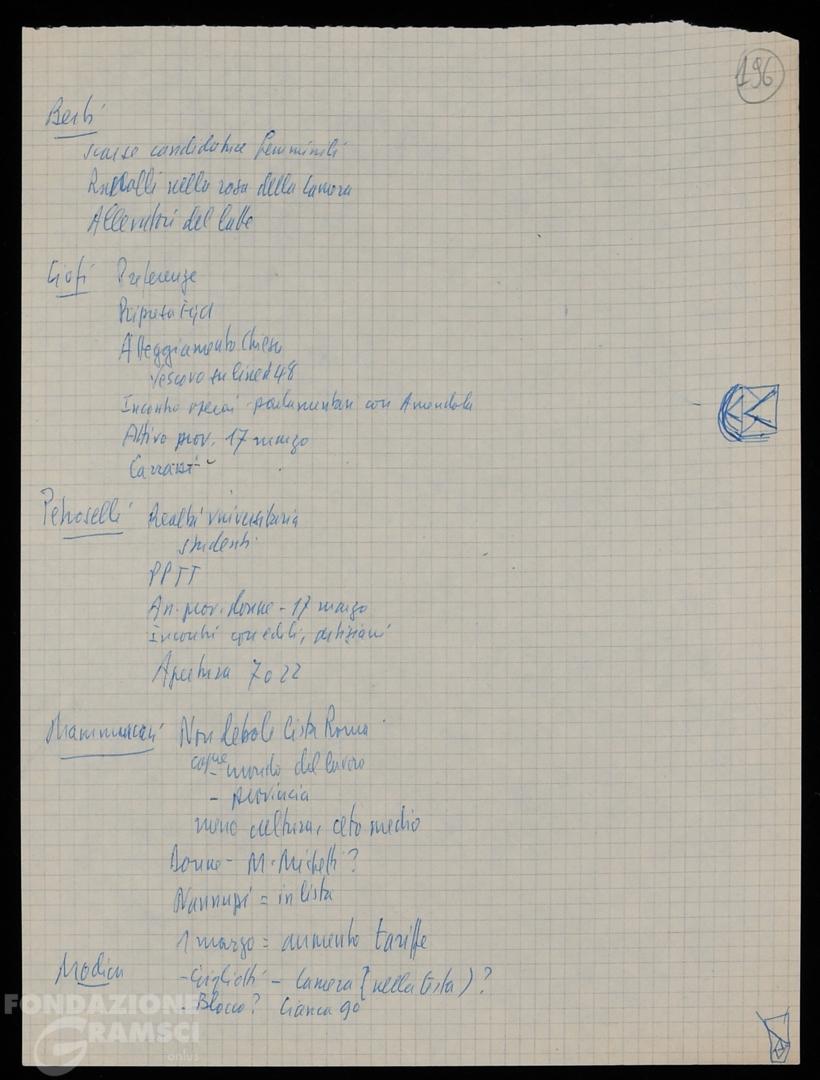 196
Berti
scarse candidature femminili
nella rosa della Camera
Allevatori del latte
Ciofi Preferenze
Ripresa Fgci
Atteggiamento Chiesa
Vescovo su linea 48
Incontro operai - parlamentari con Amendola
Attivo prov. 17 marzo
Petroselli Realtà universitaria
studenti
PPTT
An. prov. donne - 17 marzo
Incontri con edili, artigiani
Apertura 7 o 22
Mammucari Non debole lista Roma
come - mondo del lavoro
- provincia
meno cultura, ceto medio
Donne - M. Michetti?
Nannuzzi = in lista
1 marzo = aumento tariffe
Modica - Gigliotti - Camera (nella lista)?
- Blocco? Cianca 90
FONDAZIONE
GRAMSCI
onlus